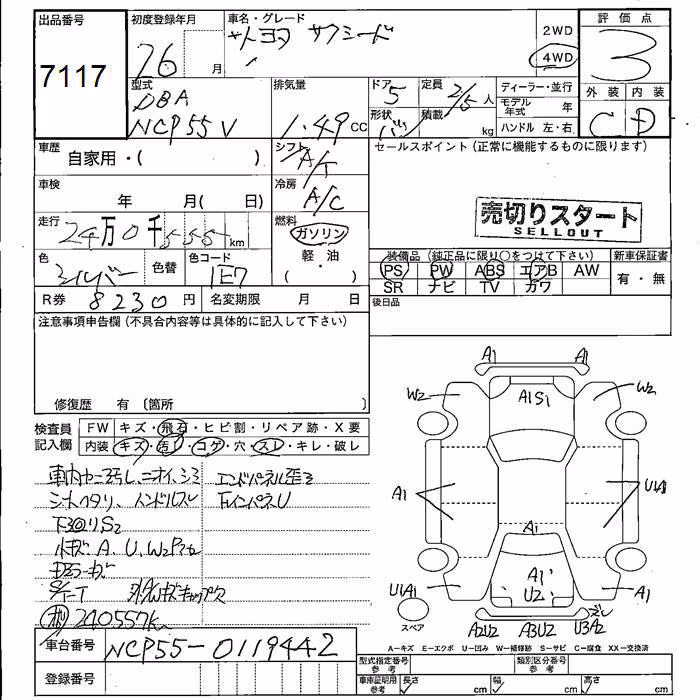 出品番号
7117
初度登録年月
26 月
車名・グレード
トヨタ サクシード
2WD
4WD
評価点
3
外装 内装
C D
型式
DBA
NCP55V
排気量
1.49 cc
ドア 5
形状 バン
定員 2/5 人
積載 kg
ディーラー・並行
モデル年式 年
ハンドル 左・右
車歴
自家用・( )
シフト
A/T
セールスポイント (正常に機能するものに限ります)
車検
年 月( 日)
冷房
A/C
売切りスタート
SELLOUT
走行
24万0千555 km
燃料
ガソリン
軽・油
色
シルバー
色替
色コード
1E7
装備品 (純正品に限り○をつけて下さい)
新車保証書
PS PW ABS エアB AW
SR ナビ TV カワ
有・無
R券 8230 円
名変期限 月 日
後日品
注意事項申告欄 (不具合内容等は具体的に記入して下さい)
修復歴 有 〔箇所 〕
検査員記入欄
FW キズ・飛石・ヒビ割・リペア跡・X要
内装 キズ・汚レ・コゲ・穴・スレ・キレ・破レ
車内ヤニ汚レ、ニオイ、シミ
エンドパネル歪ミ
シートヘタリ、ハンドルスレ
下回リS2
小キズ、A、U、W2アル
240557km
A1 A1
W2 W2
A1S1
A1 U1A1
A1
A1
U2
U1A1 A1
スペア
A2U2 A3U2 U3A2
車台番号 NCP55-0119442
登録番号
A－キズ E－エクボ U－凹み W－補修跡 S－サビ C－腐食 XX－交換済
型式指定番号 参考
類別区分番号 参考
車庫証明用 参考
長さ cm
幅 cm
高さ cm